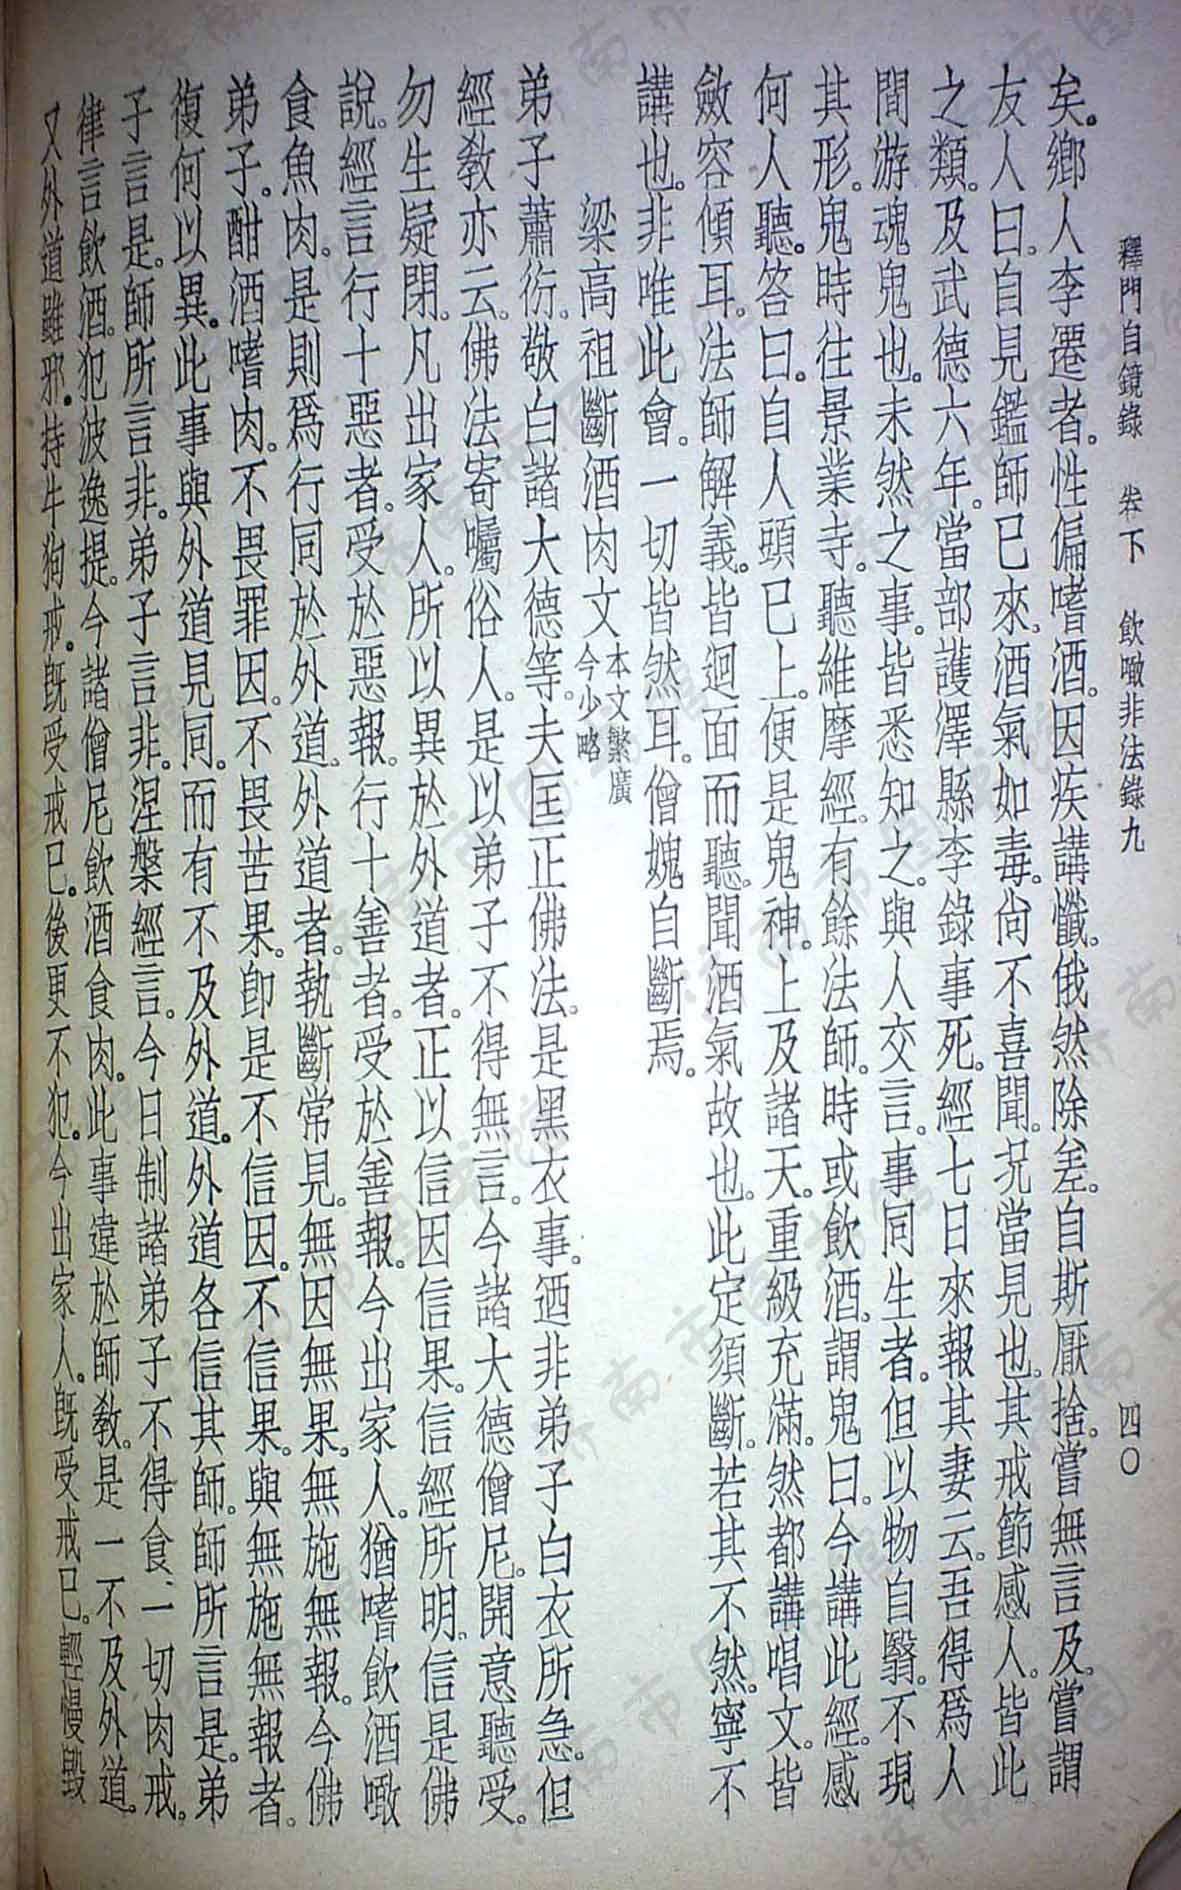 釋門自鏡錄　卷下　飲噉非法錄九　四〇
矣。鄉人李遷者。性偏嗜酒。因疾講懺。俄然除差。自斯厭捨。嘗無言及。嘗謂
友人曰。自見鑑師已來。酒氣如毒。尙不喜聞。況當見也。其戒節感人。皆此
之類。及武德六年。當部護澤縣李錄事死。經七日來報其妻云。吾得爲人
間游魂鬼也。未然之事。皆悉知之。與人交言。事同生者。但以物自翳。不現
其形。鬼時往景業寺。聽維摩經。有餘法師。時或飲酒。謂鬼曰。今講此經。感
何人聽。答曰。自人頭已上。便是鬼神。上及諸天。重級充滿。然都講唱文。皆
斂容傾耳。法師解義。皆迴面而聽。聞酒氣故也。此定須斷。若其不然。寧不
講也。非唯此會。一切皆然耳。僧媿自斷焉。
梁高祖斷酒肉文本文繁廣今少略
弟子蕭衍。敬白諸大德等。夫匡正佛法。是黑衣事。迺非弟子白衣所急。但
經教亦云。佛法寄囑俗人。是以弟子不得無言。今諸大德僧尼。開意聽受。
勿生疑閉。凡出家人。所以異於外道者。正以信因信果。信經所明。信是佛
說。經言行十惡者。受於惡報。行十善者。受於善報。今出家人。猶嗜飲酒噉
食魚肉。是則爲行同於外道。外道者。執斷常見。無因無果。無施無報。今佛
弟子。酣酒嗜肉。不畏罪因。不畏苦果。卽是不信因。不信果。與無施無報者。
復何以異。此事與外道見同。而有不及外道。外道各信其師。師所言是。弟
子言是。師所言非。弟子言非。涅槃經言。今日制諸弟子不得食、一切肉戒。
律言飲酒。犯波逸提。今諸僧尼飲酒食肉。此事違於師教。是一不及外道。
又外道雖邪。持牛狗戒。旣受戒已。後更不犯。今出家人。旣受戒已。輕慢毀